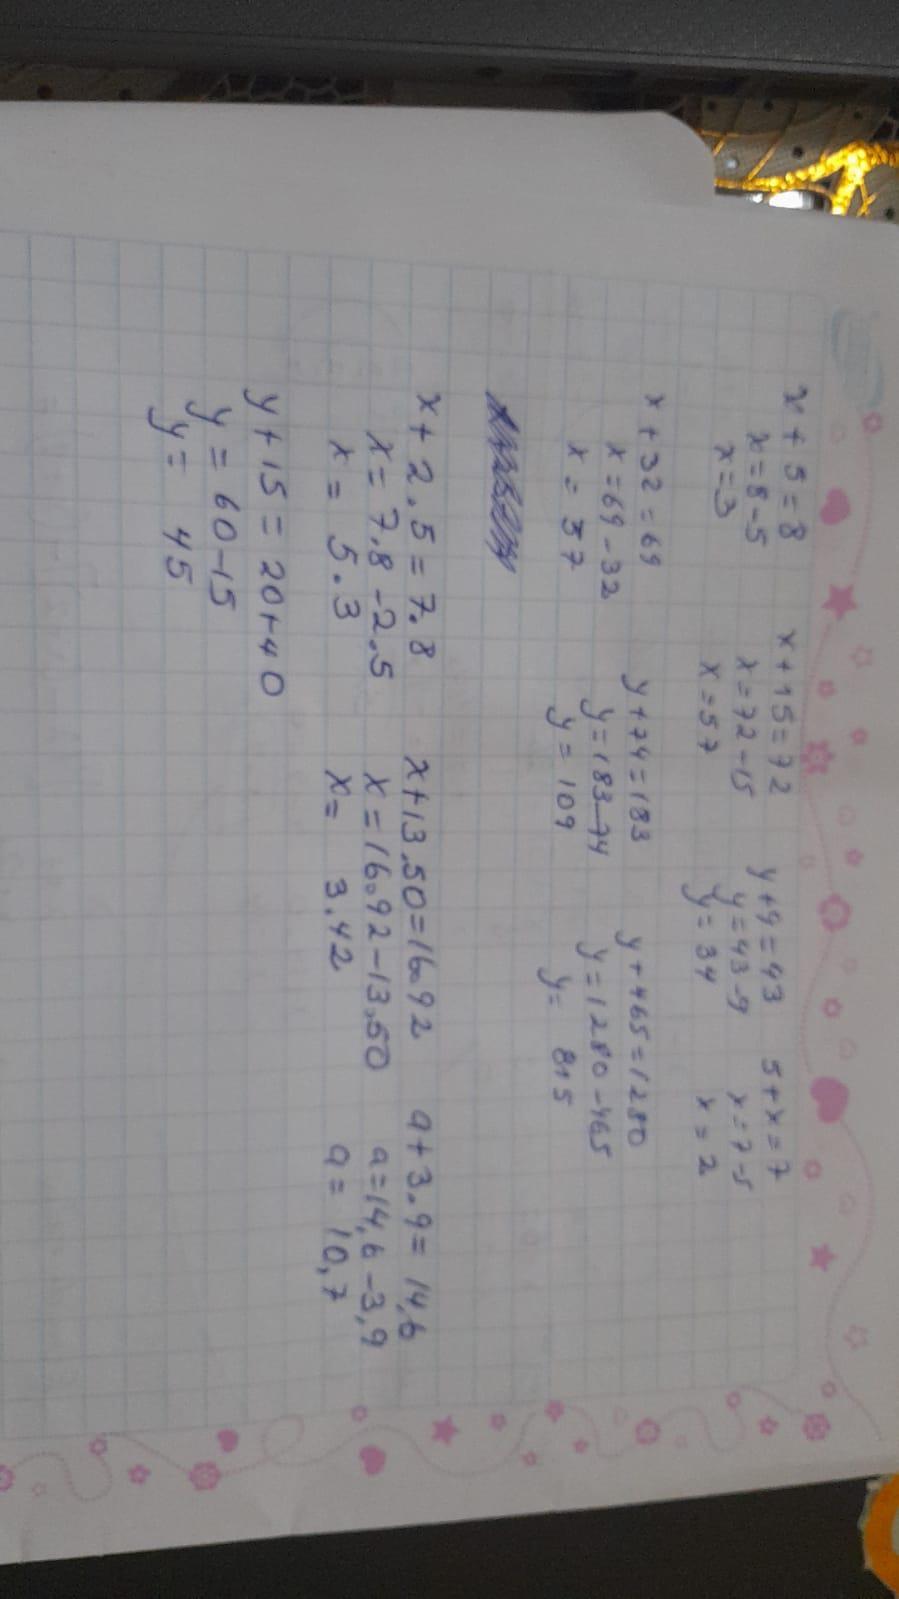 x + 5 = 8
x = 8 - 5
x = 3
x + 15 = 72
x = 72 - 15
x = 57
y + 9 = 43
y = 43 - 9
y = 34
5 + x = 7
x = 7 - 5
x = 2
x + 32 = 69
x = 69 - 32
x = 37
y + 74 = 183
y = 183 - 74
y = 109
y + 465 = 1280
y = 1280 - 465
y = 815
x + 2.5 = 7.8
x = 7.8 - 2.5
x = 5.3
x + 13.50 = 16.92
x = 16.92 - 13.50
x = 3.42
a + 3.9 = 14,6
a = 14,6 - 3,9
a = 10,7
y + 15 = 20 + 40
y = 60 - 15
y = 45